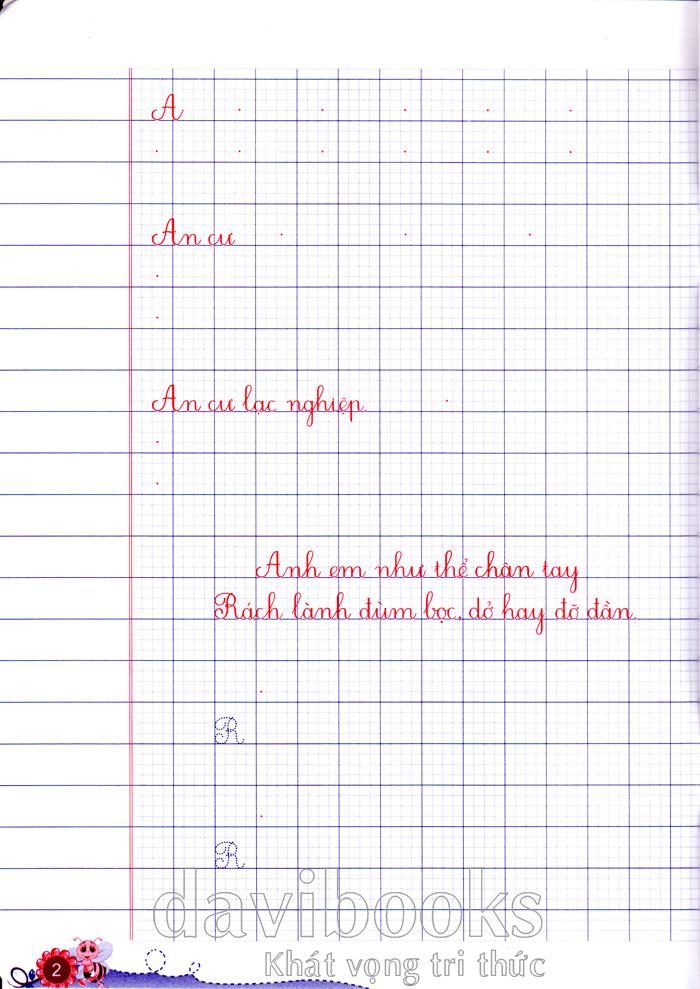 A
An cư
An cư lạc nghiệp.
Anh em như thể chân tay
Rách lành đùm bọc, dở hay đỡ đần.
R
R
davibooks
2
Khát vọng tri thức